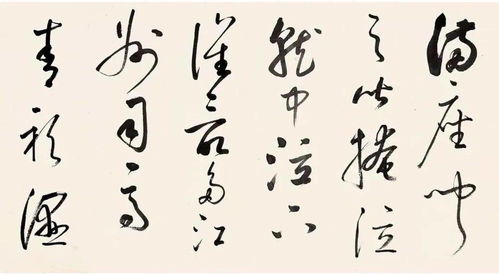 滿座聞
之皆掩泣
就中泣下
誰最多江
州司馬
青衫濕